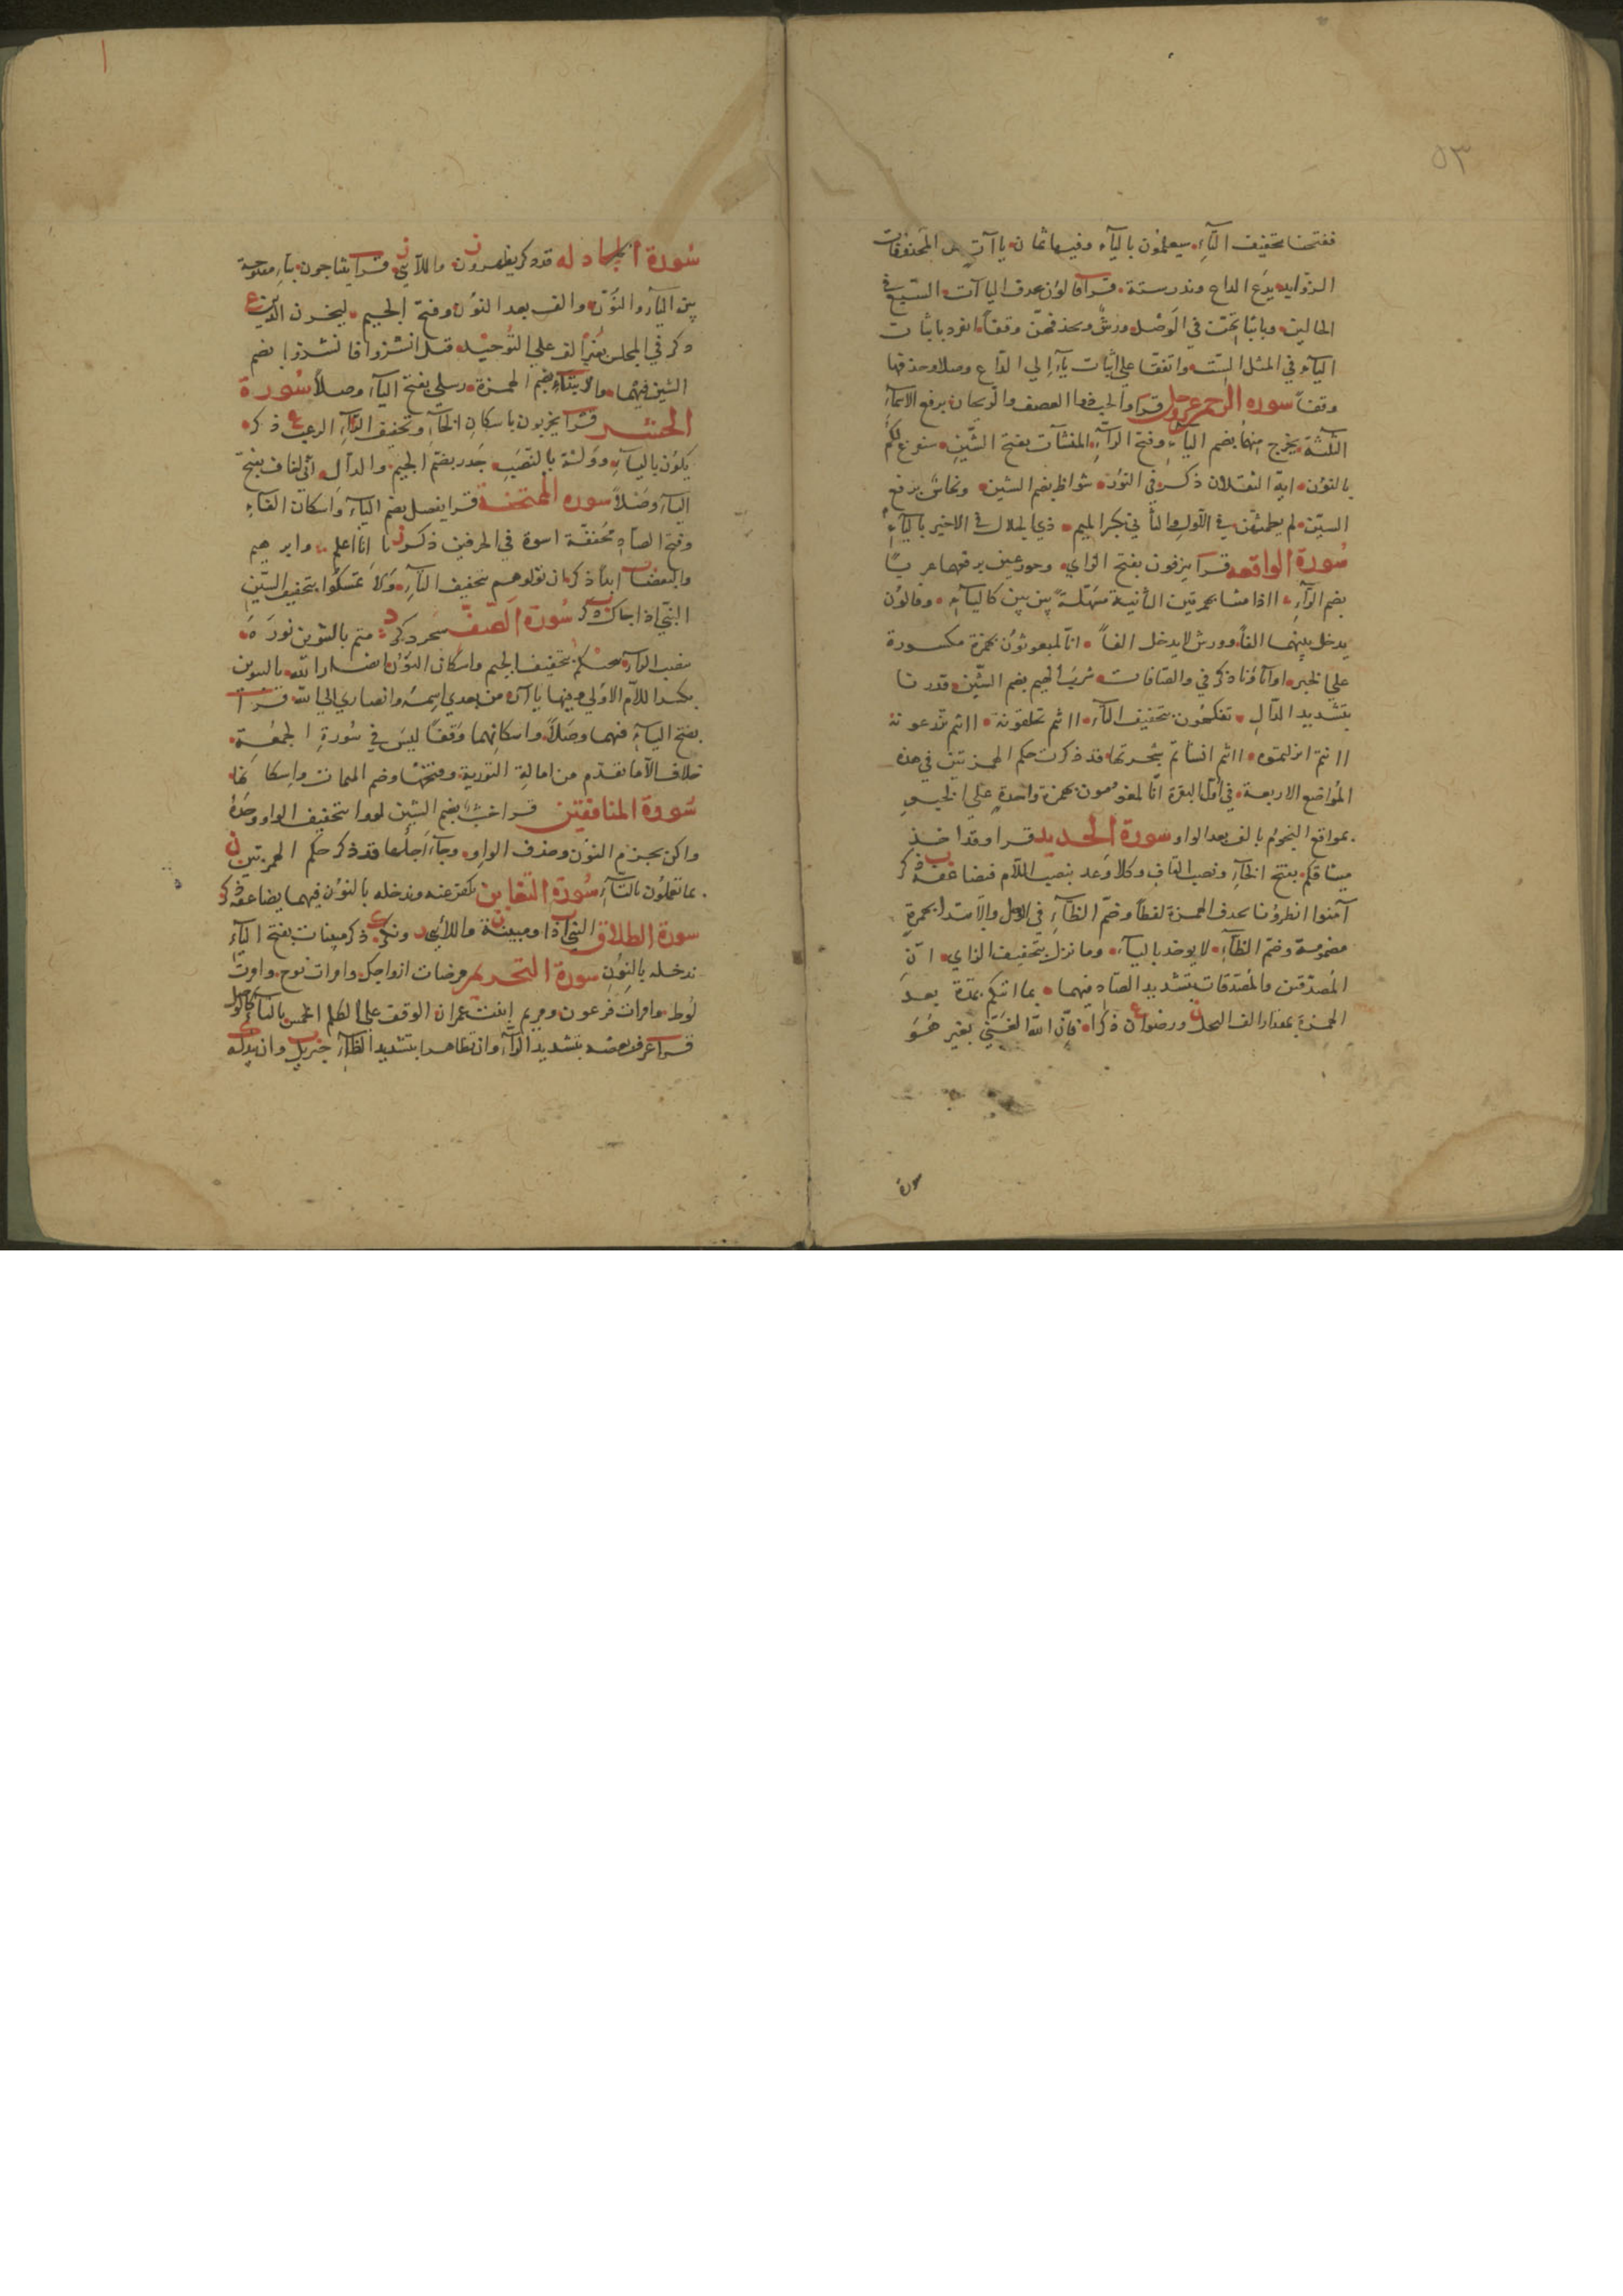 ٥٣
ففتحنا بتخفيف التآءِ سيعلمون باليآء وفيها ثمان ياآتٍ من المحذوفات
الزوايد يدع الداع ونذر ستة قرا قالون بحذف الياآت التسع في
الحالين وباثباتهن في الوصل ورش وبحذفهن وقفاً انفرد باثبات
اليآء في المثل الست واتفقا على اثبات يآءِ الى الداع وصلا وحذفها
وقفاً سوره الرحمن عز وجل قرا والحب ذو العصف والريحان برفع الاسمآء
الثلثة يخرج منهما بضم اليآء وفتح الرآءِ المنشآت بفتح الشين سنفرغ لكم
بالنون ايه الثقلان ذكر في النون شواظ بضم الشين ونحاس برفع
السين لم يطمثهن في الاول والثاني بكسر الميم ذي الجلال في الاخير باليآءِ
سورة الواقعه قرا ينزفون بفتح الزاي وحور عين برفعهما عربًا
بضم الرآءِ ااذا متنا بهمزتين الثانية مسهلة بين بين كاليآءِ وقالون
يدخل بينهما الفاً وورش لا يدخل الفاً انا لمبعوثون بهمزة مكسورة
على الخبر اوآباؤنا ذكر في والصافات شرب الهيم بضم الشين قدرنا
بتشديد الدالِ تفكهون بتخفيف التآء ااانتم تخلقونه ااانتم تزرعونه
اانتم انزلتموه ااانتم انشاتم شجرتها قد ذكرت حكم الهمزتين في هذه
المواضع الاربعة في اول البقرة انا لمغرمون بهمزة واحدةٍ على الخبر
بمواقع النجوم بالف بعد الواو سورة الحديد قرا وقد اخذ
ميثاقكم بفتح الخآءِ ونصب القافِ وكلا وعد بنصب اللام فيضاعفه ذكر
آمنوا انظرونا بحذف الهمزة لفظاً وضم الظآءِ في الوصل والابتدا بهمزةٍ
مضمومة وضم الظآءِ لا يوخذ باليآء وما نزل بتخفيف الزاي ان
المصدقين والمصدقات بتشديد الصاد فيهما بما اتيكم بمدة بعد
الهمزة بمقدار الف البخل ورضوان ذكرا فان الله الغني بغير هو
سورة المجادله قد ذكر يظهرون واللآئي قرا يتناجون بتآءٍ مفتوحة
بين اليآء والنون والف بعد النون وفتح الجيم ليحزن الذين
ذكر في المجلس بغير الف على التوحيد قيل انشزوا فانشزوا بضم
الشين فيهما وابتدآء بضم الهمزة ورسلي بفتح اليآء وصلاً سورة
الحشر قرا يخربون باسكان الخآءِ وتخفيف الرآءِ الرعب ذكر
يكون باليآءِ دولة بالنصب جدر بضم الجيم والدال اني اخاف بفتح
اليآء وصلاً سوره الممتحنة قرا يفصل بضم اليآء واسكان الفآءِ
وفتح الصاد مخففة اسوة في الحرفين ذكر انا اعلم وابرهيم
والبغضآء ابداً ذكر ان تولوهم بتخفيف التآءِ ولا تمسكوا بتخفيف السين
النبي اذا جاك ذكر سورة الصف سحر ذكر متم بالتنوين نوره
بنصب الرآء تنجيكم بتخفيف الجيم واسكان النون انصارا لله بالتنوين
بكسر اللام الاولى وفيها ياآن من بعدي اسمه وانصاري الى الله قرا
بفتح اليآءِ فيهما وصلاً واسكانهما وقفاً ليس في سورة الجمعة
خلاف الا ما تقدم من امالة التورية وفتحها وضم الميمات واسكانها
سورة المنافقين قرا خشب بضم الشين لووا بتخفيف الواو وحده
واكن بجزم النون وحذف الواو وجآء اجلها قد ذكر حكم الهمزتين
بما تعملون بالتآء سورة التغابن نكفر عنه وندخله بالنون فيهما يضاعفه ذكر
سورة الطلاق النبي اذا ومبينة واللآئي ونكرا ذكر مبينات بفتح اليآءِ
ندخله بالنون سورة التحريم مرضات ازواجك وامرات نوح وامرت
لوط وامرات فرعون ومريم ابنت عمران الوقف على الكلم الخمس بالتآء
قرا عرف بعضه بتشديد الرآء وان تظاهرا بتشديد الظآء جبريل وان يبدله